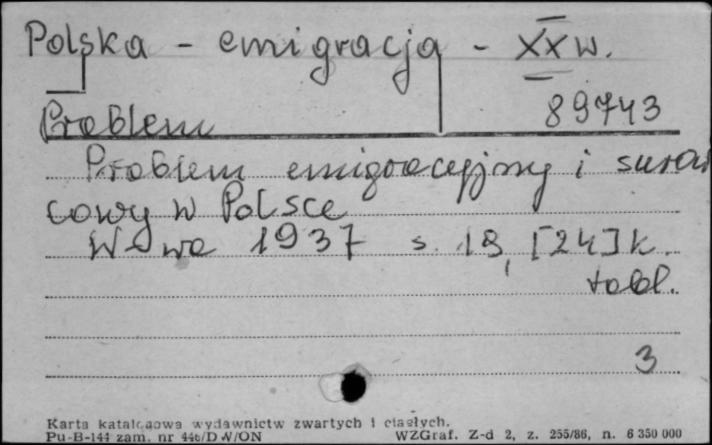 Polska - emigracja - XX w.
89743
Problem
Problem emigracyjny i surow
cowy w Polsce
W-wa 1937 s. 18, [24] k.
tabl.
3
Karta katalogowa wydawnictw zwartych i ciągłych.
Pu-B-144 zam. nr 446/DW/ON WZGraf. Z-d 2, z. 255/86, n. 6 350 000